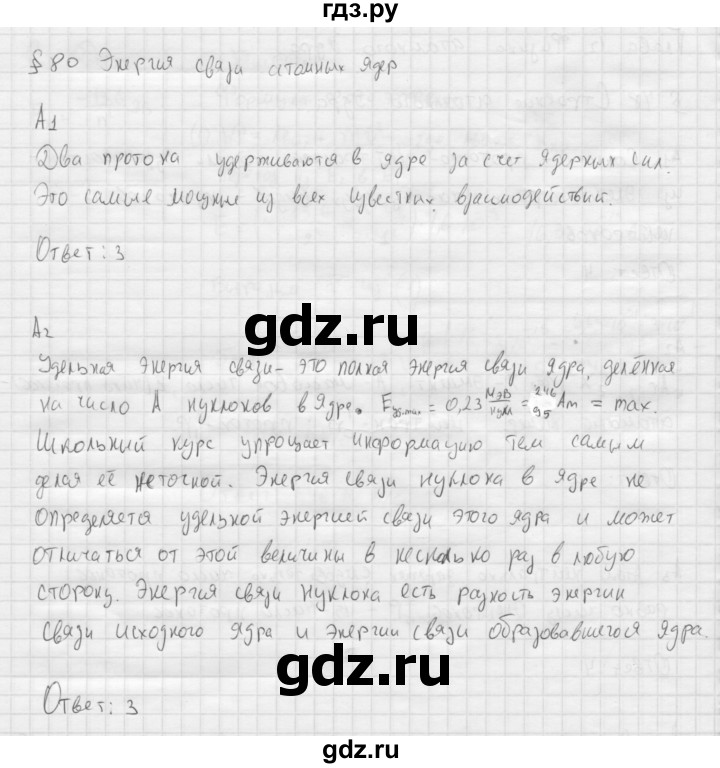 гдз.ру
§ 80 Энергия связи атомных ядер
А1
Два протона удерживаются в ядре за счет ядерных сил.
Это самые мощные из всех известных взаимодействий.
Ответ: 3
gdz.ru
А2
Удельная энергия связи - это полная энергия связи ядра, делённая
на число А нуклонов в ядре. = 0,23 МэВ/нукл = Am = max.
Школьный курс упрощает информацию тем самым
делая её неточной. Энергия связи нуклона в ядре не
определяется удельной энергией связи этого ядра и может
отличаться от этой величины в несколько раз в любую
сторону. Энергия связи нуклона есть разность энергии
связи исходного ядра и энергии связи образовавшегося ядра.
gdz.ru
Ответ: 3
gdz.ru